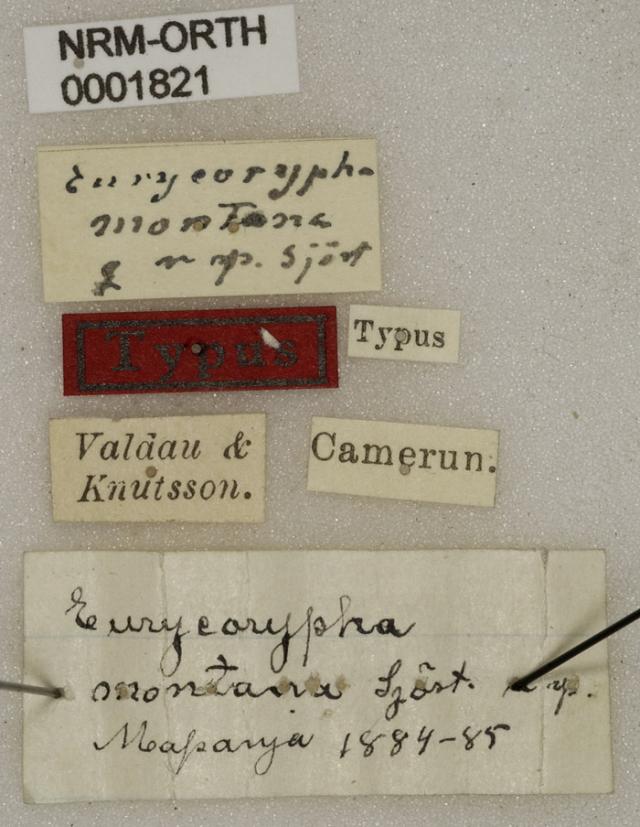 NRM-ORTH
0001821
Eurycorypha
montana
n sp. Sjöst
Typus
Typus
Valdau &
Knutsson.
Camerun.
Eurycorypha
montana Sjöst. n sp.
Mapanja 1884-85